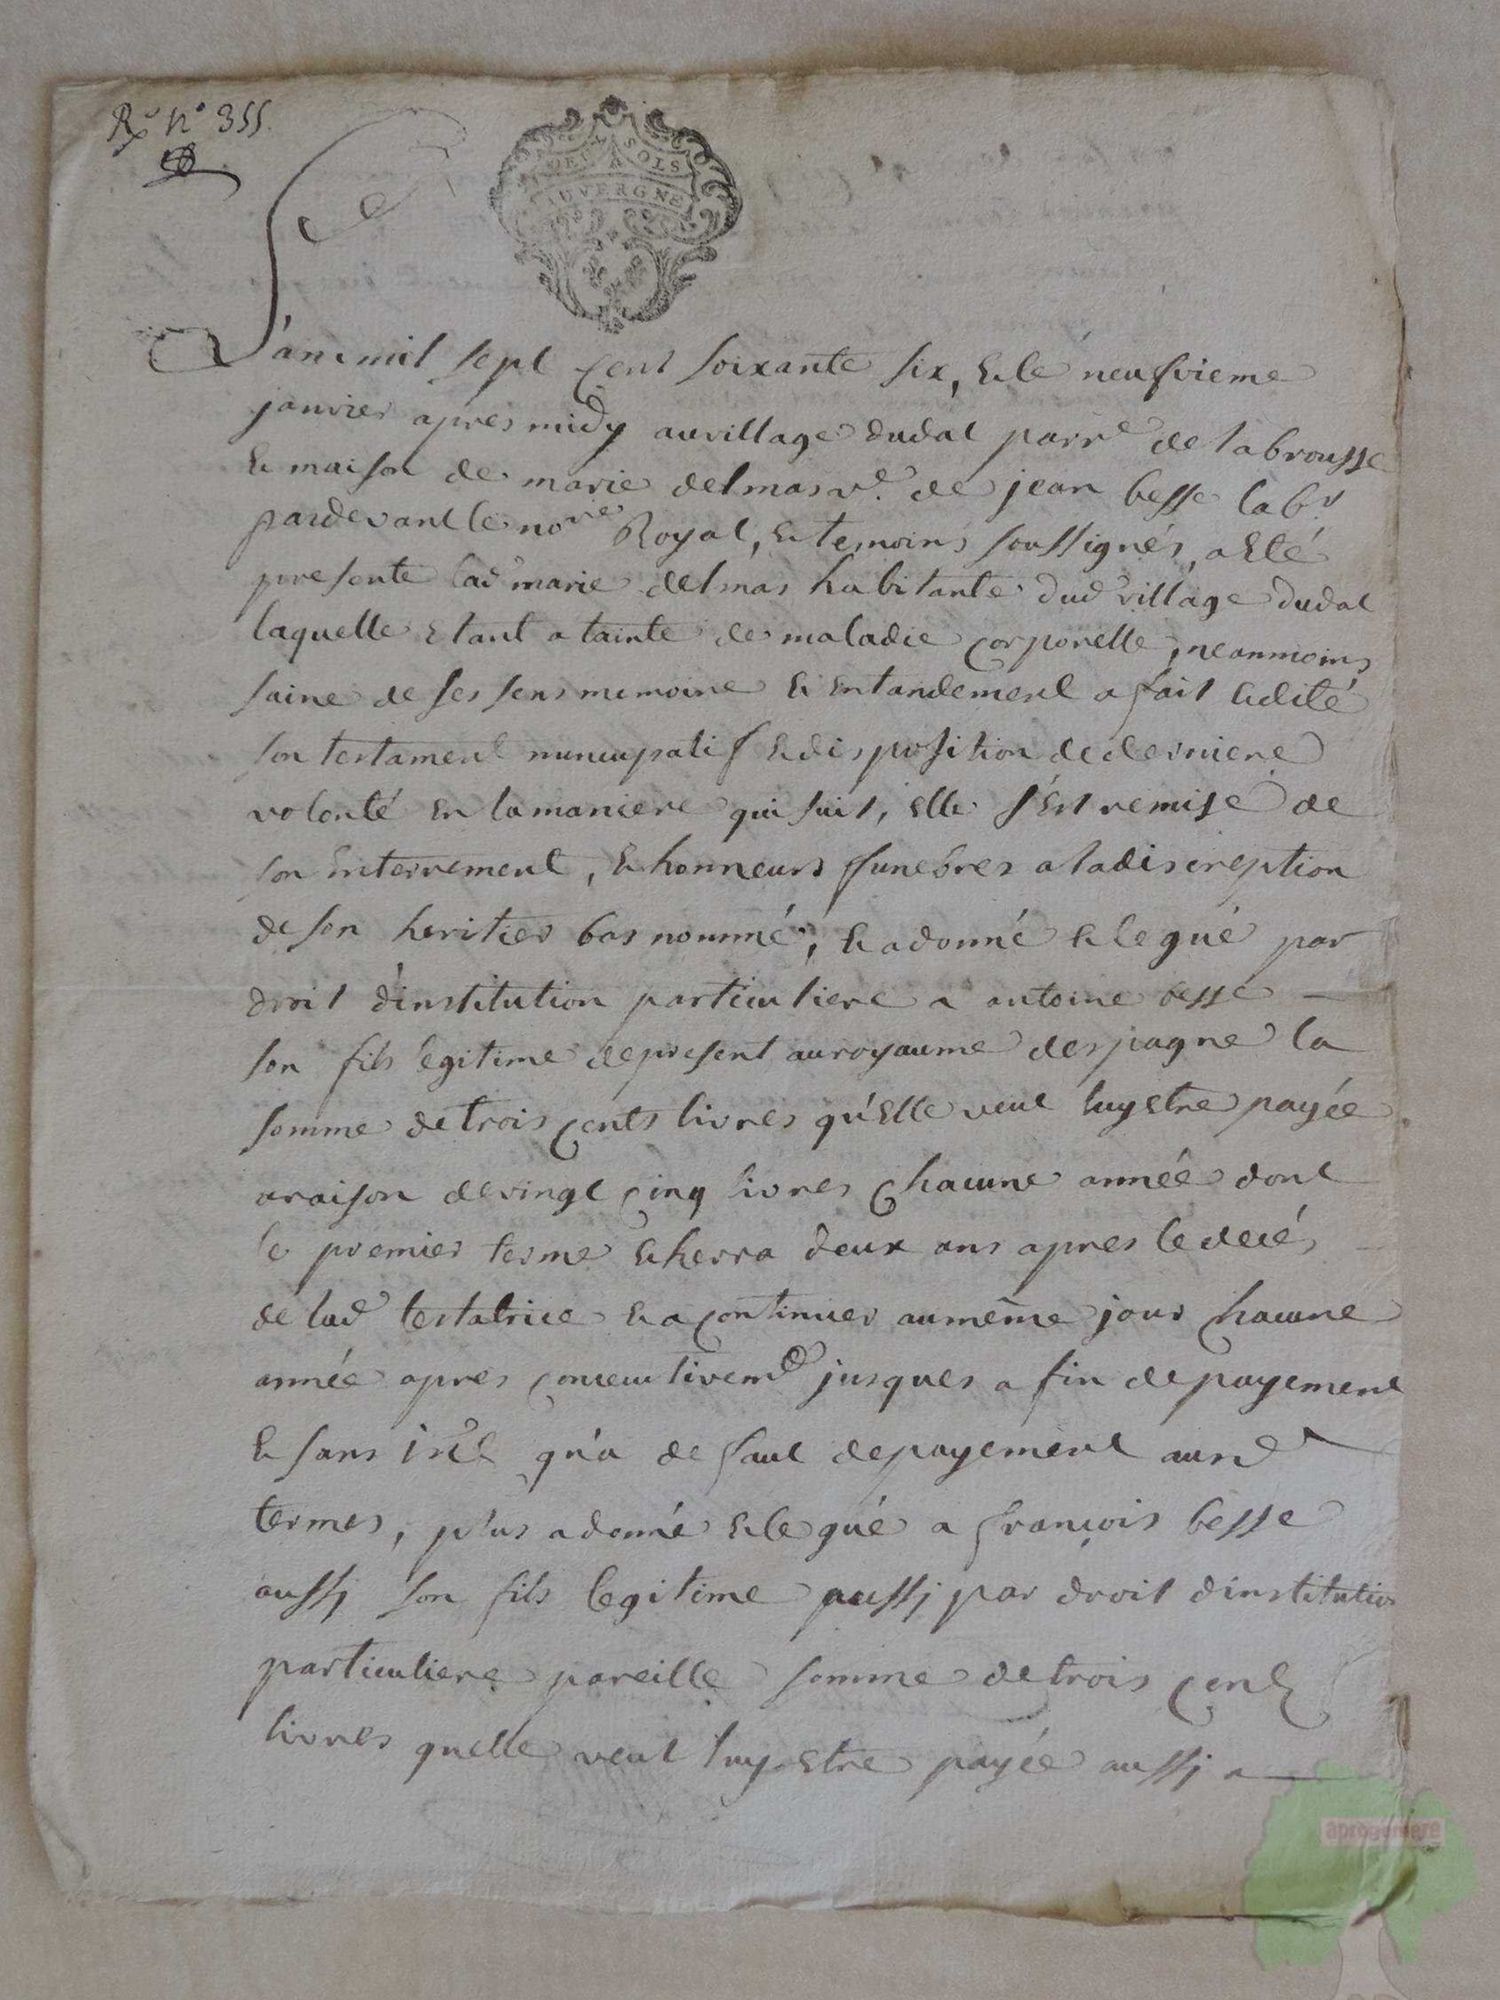 Rx n° 355.
DEUX SOLS
AUVERGNE
L'an mil sept cent soixante six, & le neufvieme
janvier apres midy au village dudal parr.e de labrousse
& maison de marie delmas v.e de jean besse lab.r
pardevant le no.re Royal, & temoins soussignés, a Eté
presente lad marie delmas habitante dud village dudal
laquelle Etant atainte de maladie corporelle, neanmoins
saine de ses sens memoire & Entandement a fait & dité
son testament nuncupatif & disposition de derniere
volonté En la maniere qui suit, Elle s'Est remise de
son Enterrement, & honneurs funebres a la discreption
de son heritier bas nommé, & a donné & legué par
droit d'institution particuliere a antoine besse
son fils legitime de present au royaume despagne la
somme de trois cents livres qu'Elle veut luy Etre payée
a raison de vingt cinq livres chacune année dont
le premier terme Echerra deux ans apres le decés
de lad testatrice & a continuer au même jour chacune
année apres consecutivem.t jusques a fin de payement
& sans int.t qu'a defaut de payement ausd
termes, plus a donné & legué a françois besse
aussj son fils legitime aussj par droit d'institution
particuliere pareille somme de trois cent
livres quelle veut luy Etre payée aussj a
aprogemere